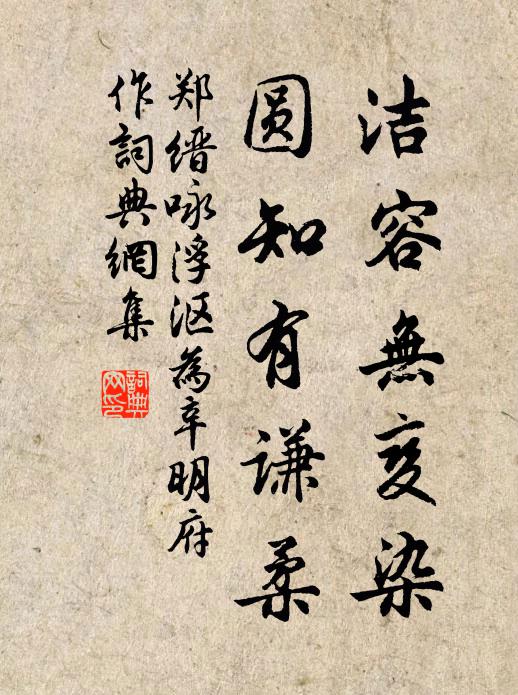 洁容無变染
圆知有谦柔
郑缙咏浮沤為辛明府
作詞典網集
詞典
网印